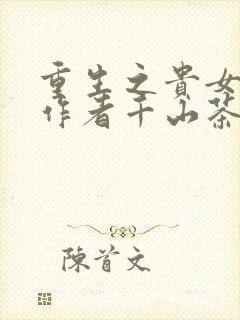 重生之貴女
作者千山茶
陳首文